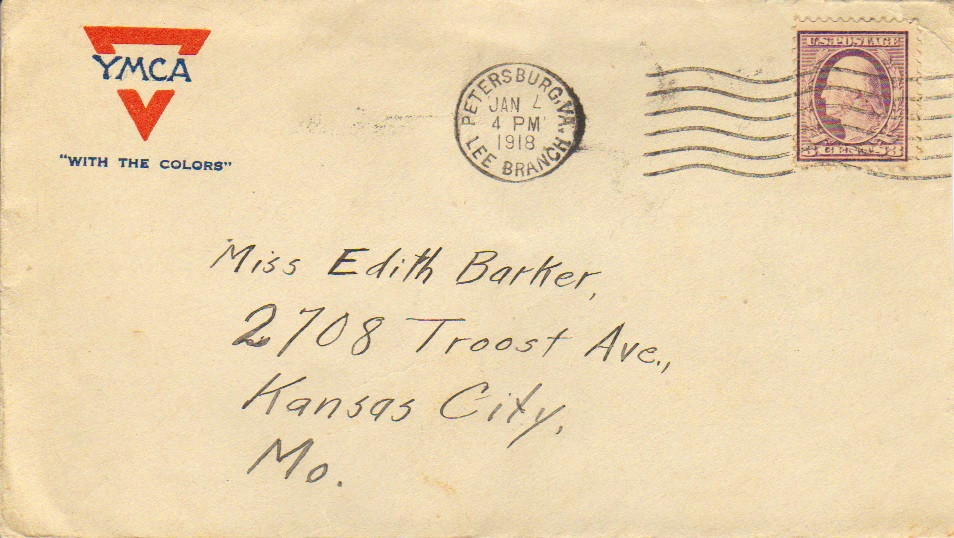 YMCA
"WITH THE COLORS"
PETERSBURG, VA.
JAN
4 PM
1918
LEE BRANCH
U.S. POSTAGE
3 CENTS 3
Miss Edith Barker,
2708 Troost Ave.,
Kansas City,
Mo.